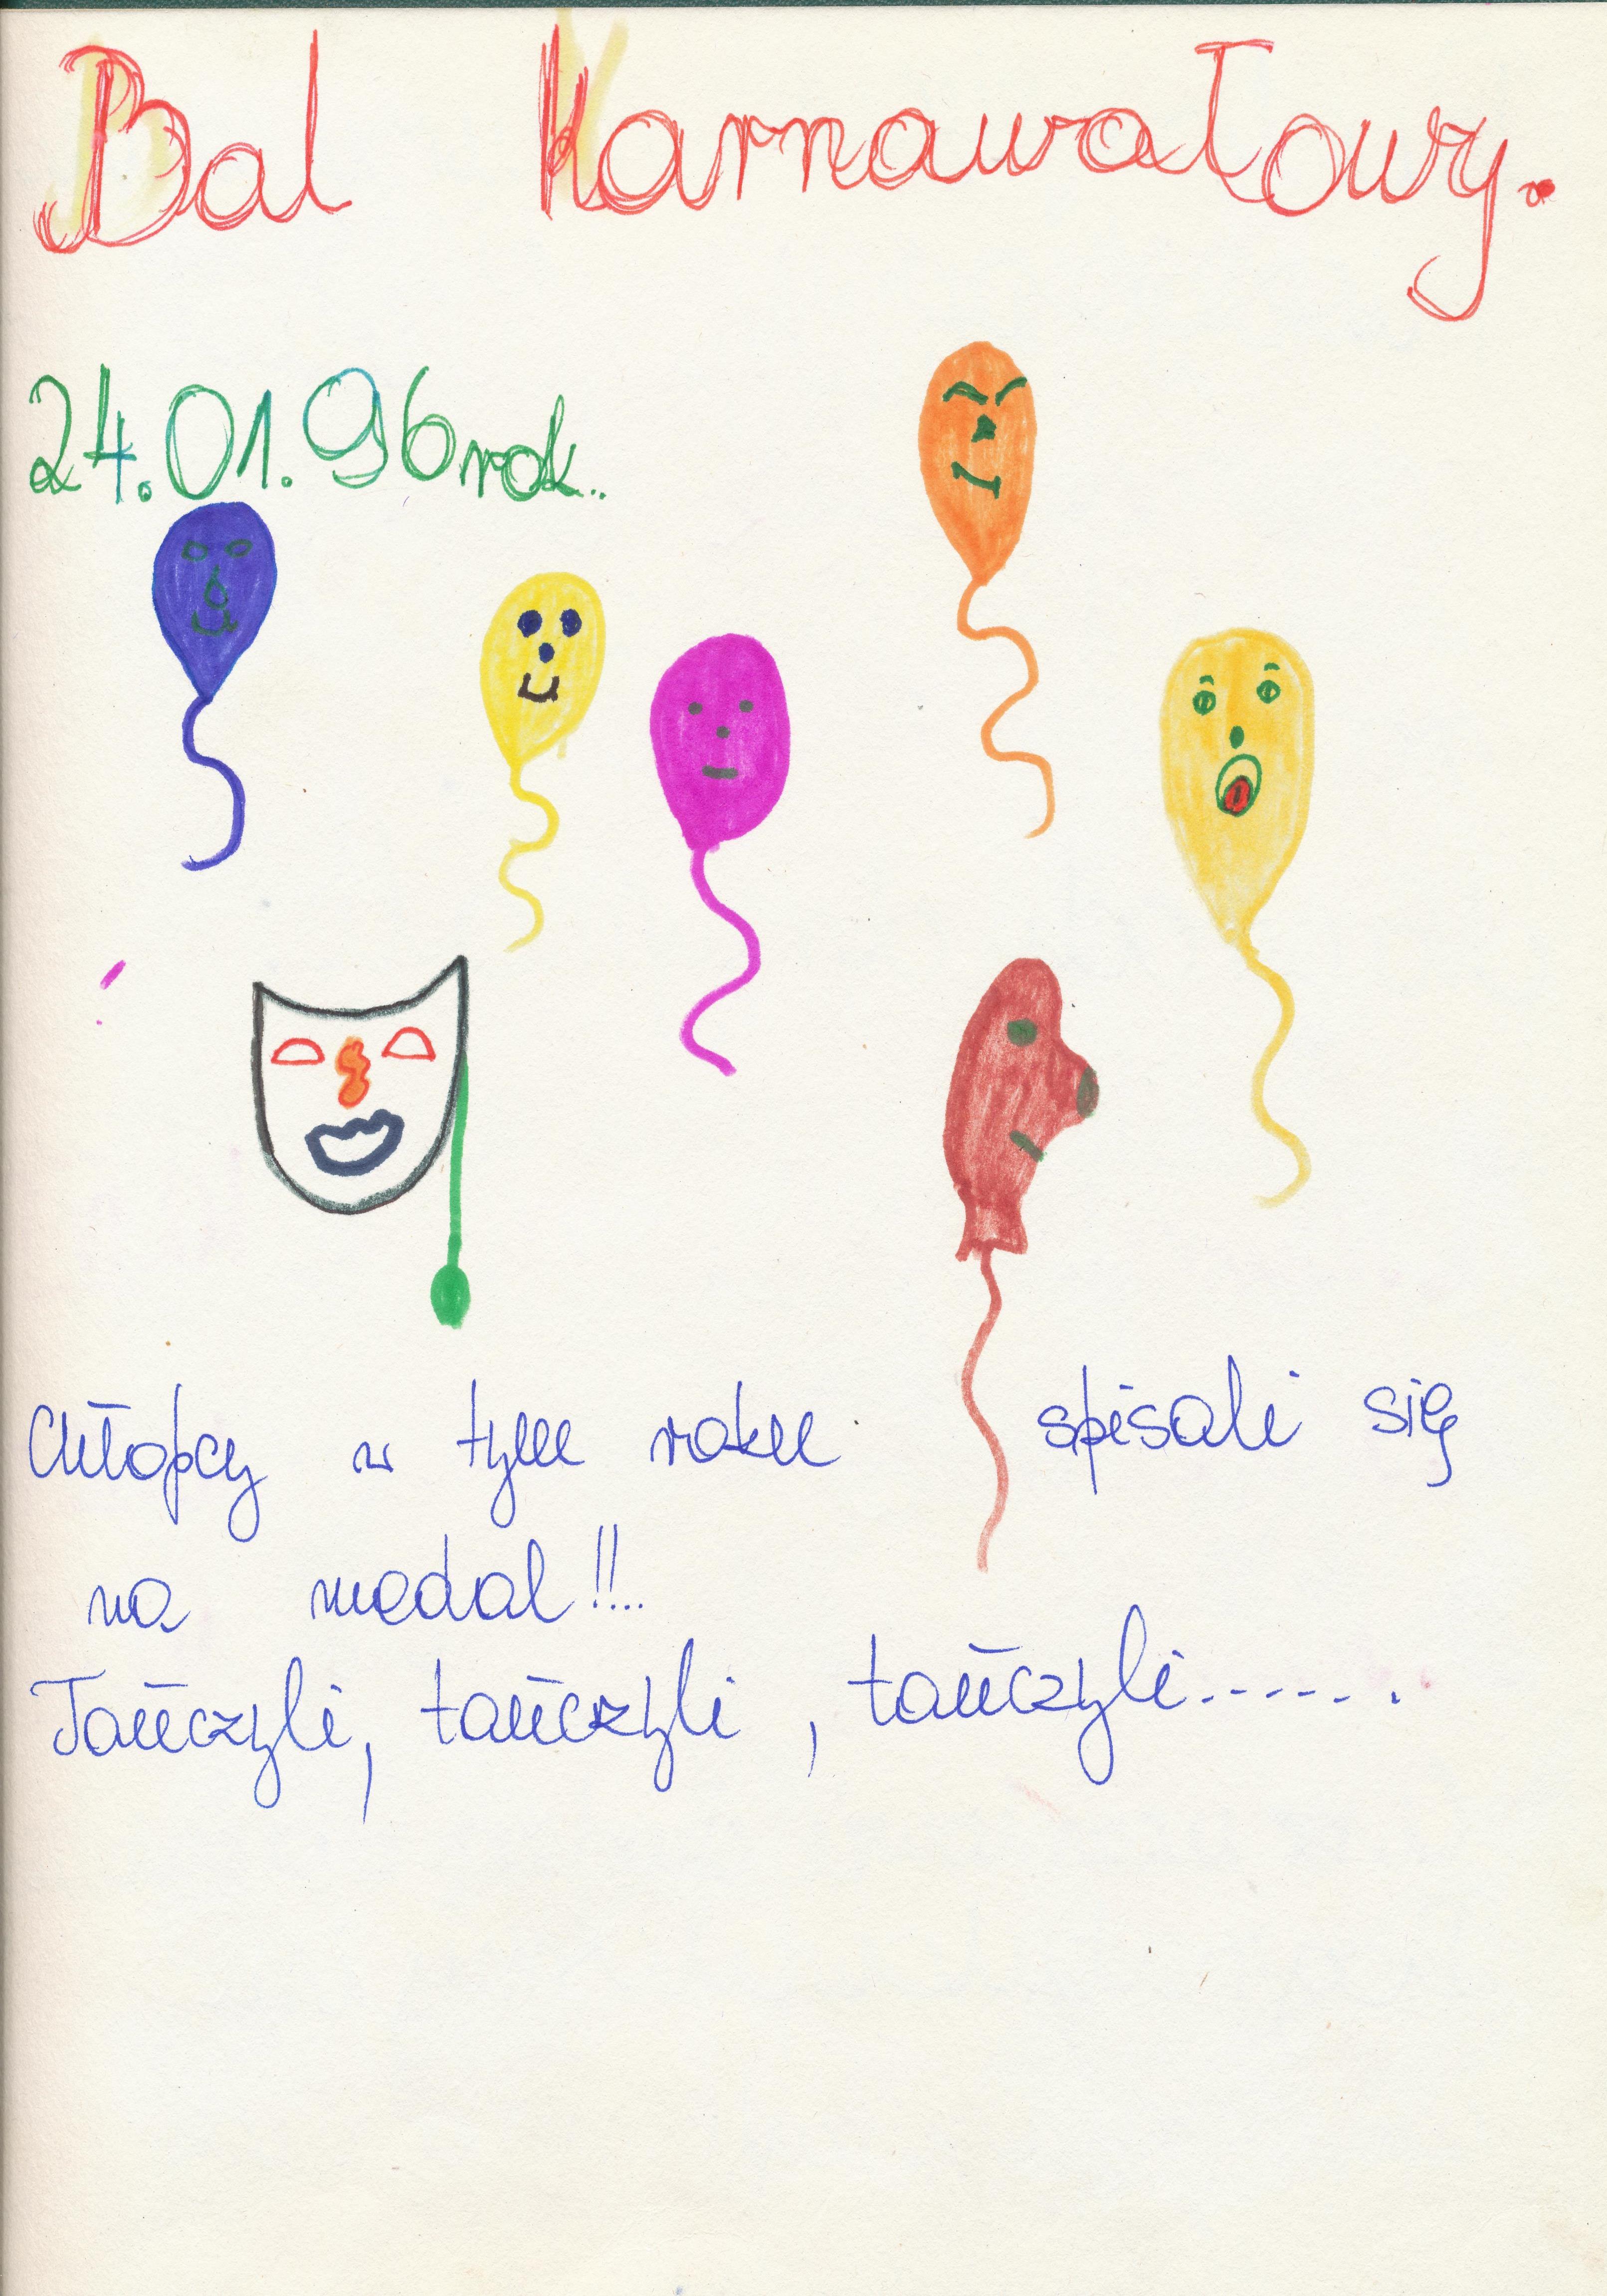 Bal Karnawałowy.
24.01.96rok..
Chłopcy w tym roku spisali się
na medal!!...
Tańczyli, tańczyli, tańczyli.......